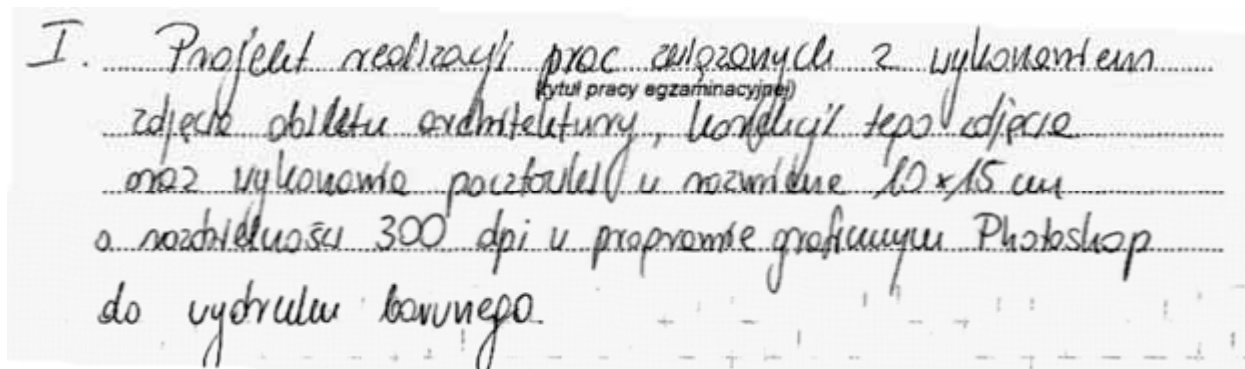 I. Projekt realizacji prac związanych z wykonaniem
(tytuł pracy egzaminacyjnej)
zdjęcia obiektu architektury, korekcji tego zdjęcia
oraz wykonania pocztówki w rozmiarze 10x15 cm
o rozdzielności 300 dpi w programie graficznym Photoshop
do wydruku barwnego.